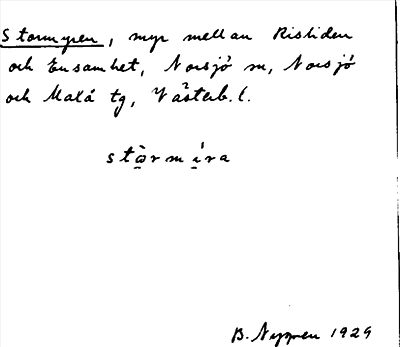 Stormyren, myr mellan Risliden
och Ensamhet, Norsjö sn, Norsjö
och Malå tg, Västerb. l.
stɷ̀rmíra
B. Nyman 1929